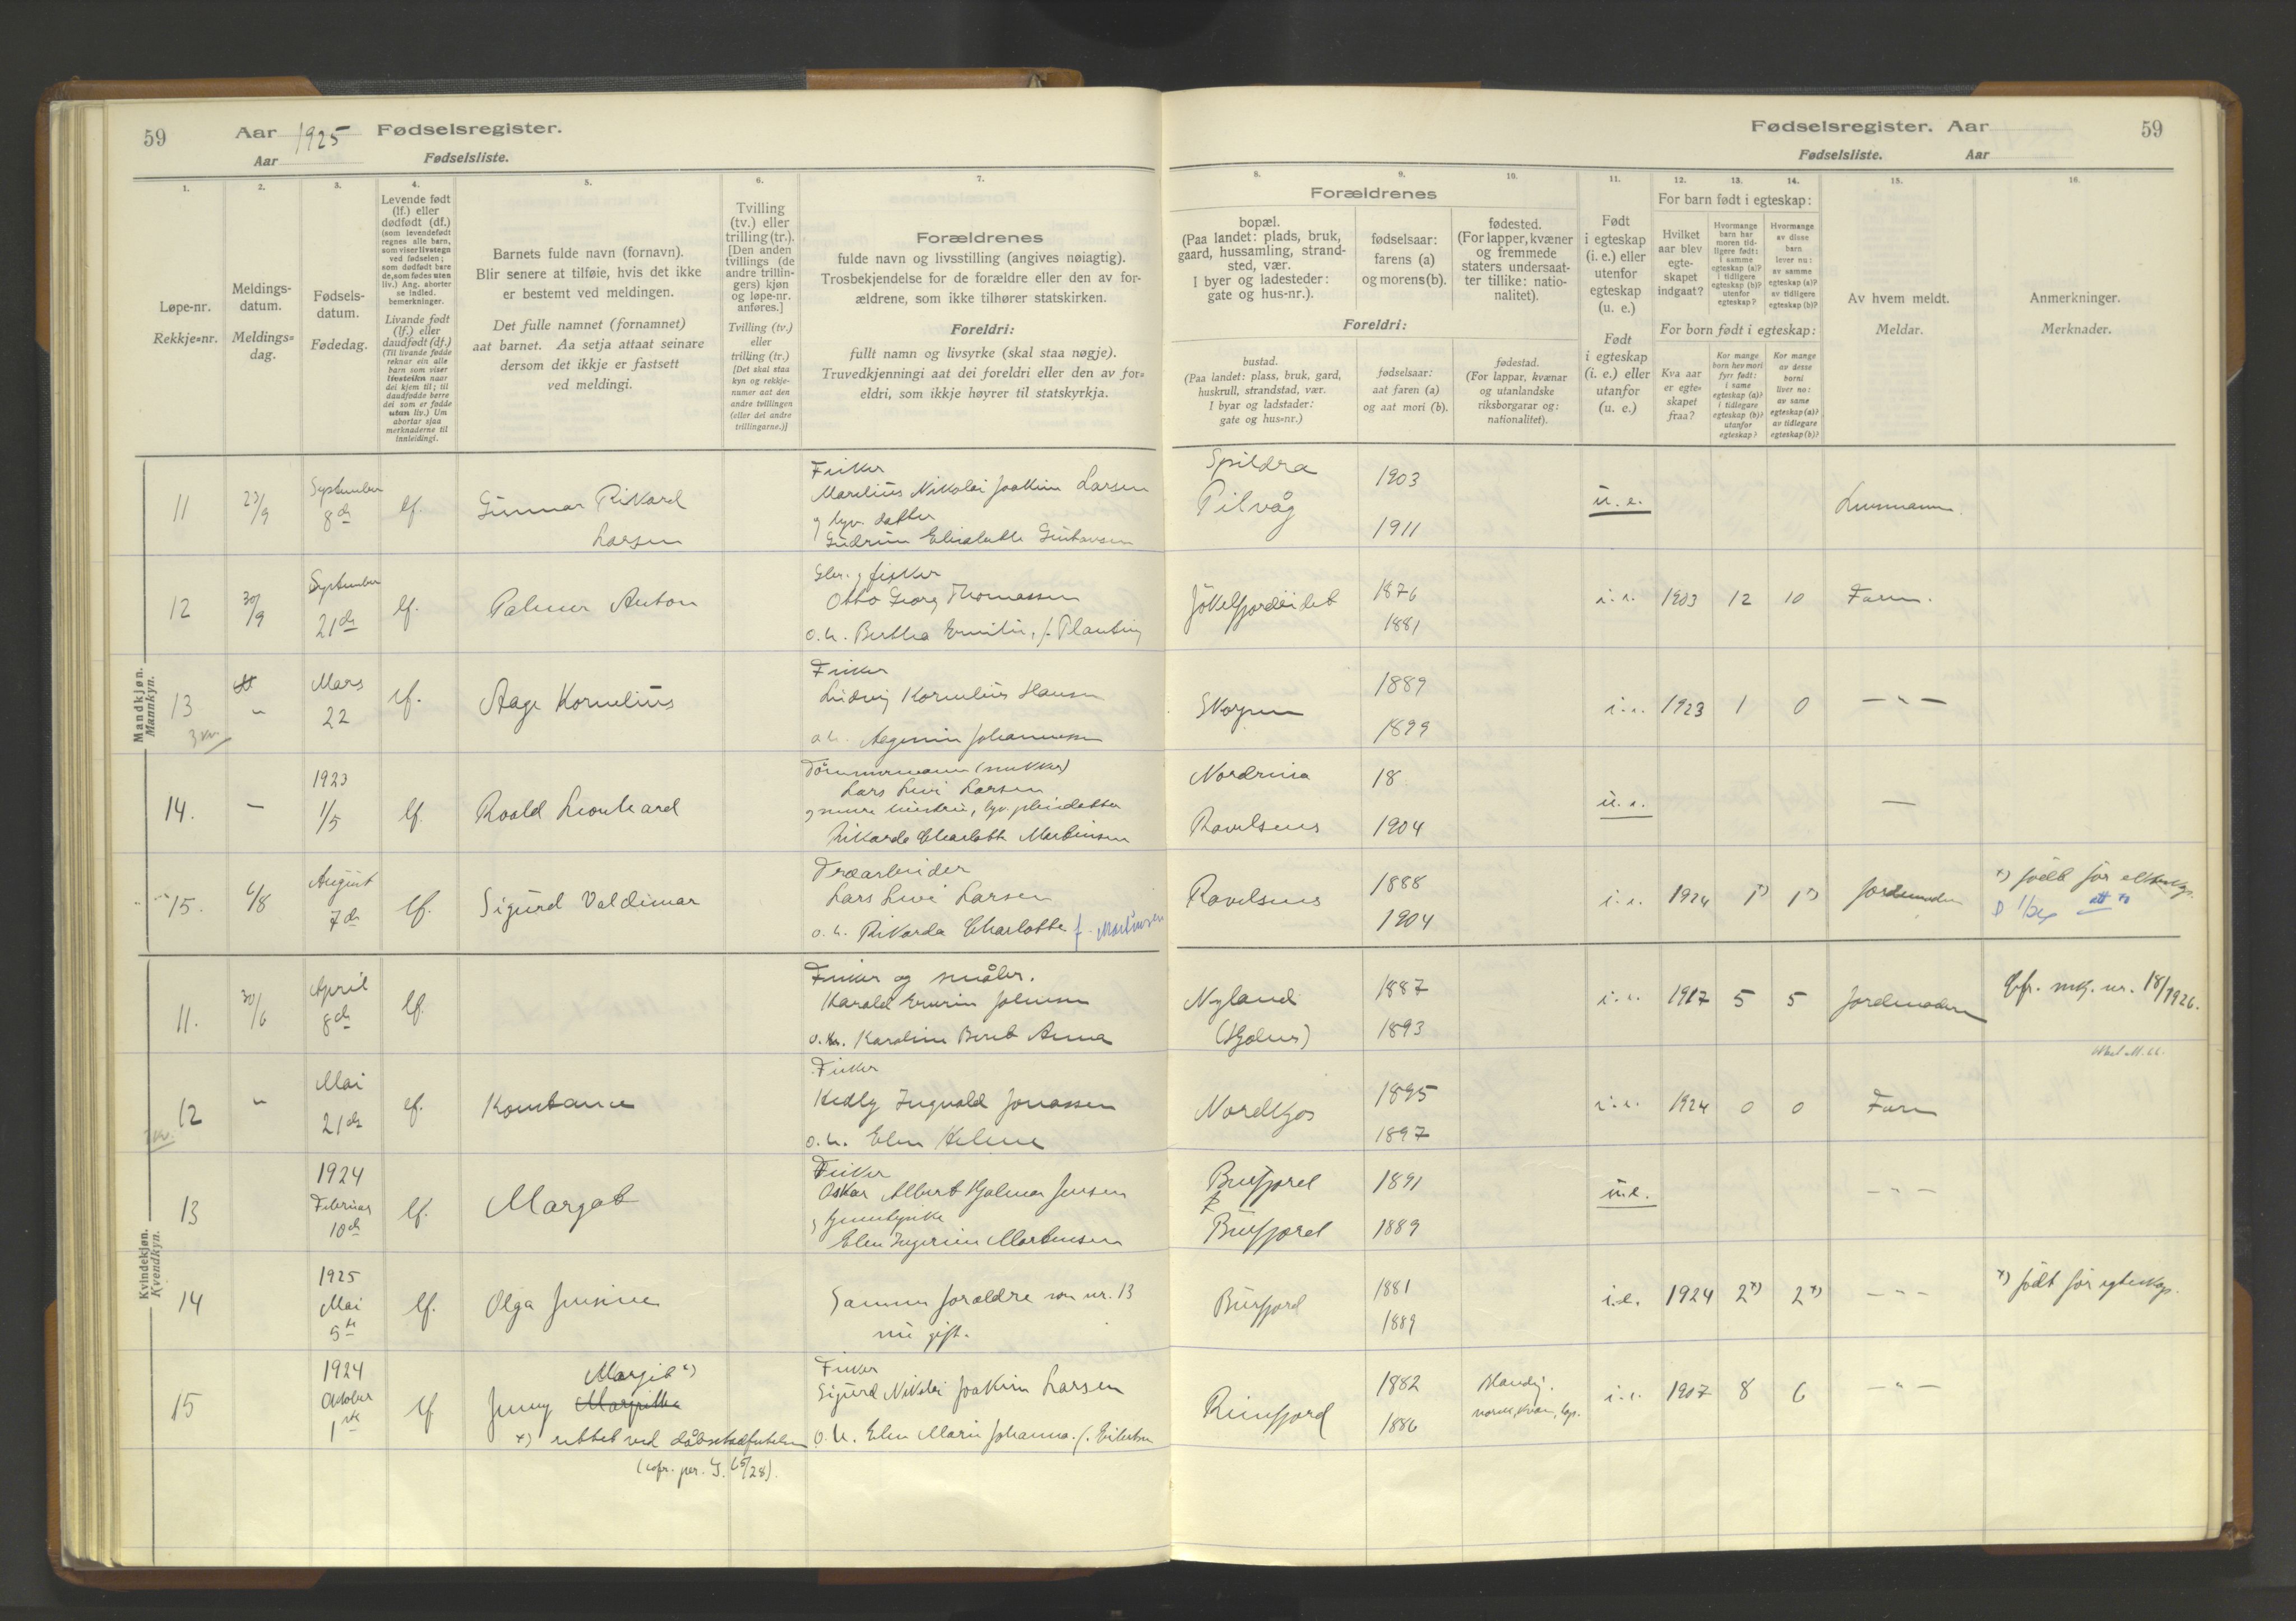 59
Aar 1925 Fødselsregister.
Aar Fødselsliste.
1. 2. 3. 4. 5. 6. 7.
Løpe-nr.
Rekkje-nr.
Meldings-
datum.
Meldings-
dag.
Fødsels-
datum.
Fødedag.
Levende født
(lf.) eller
dødfødt (df.)
(som levendefødt
regnes alle barn,
som viser livstegn
ved fødselen;
som dødfødt bare
de, som fødes uten
liv.) Ang. aborter
se indled.
bemerkninger.
Livande født
(lf.) eller
daudfødt (df.)
(Til livande fødde
reknar ein alle
barn som viser
livsteikn naar
dei kjem til; til
daudfødde berre
dei som er fødde
utan liv.) Um
abortar sjaa
merknaderne til
innleidingi.
Barnets fulde navn (fornavn).
Blir senere at tilføie, hvis det ikke
er bestemt ved meldingen.
Det fulle namnet (fornamnet)
aat barnet. Aa setja attaat seinare
dersom det ikkje er fastsett
ved meldingi.
Tvilling
(tv.) eller
trilling (tr.).
[Den anden
tvillings (de
andre trillin-
gers) kjøn
og løpe-nr.
anføres.]
Tvilling (tv.)
eller
trilling (tr.)
[Det skal staa
kyn og rekkje-
numer aat den
andre tvillingen
(eller dei andre
trillingarne.)]
Forældrenes
fulde navn og livsstilling (angives nøiagtig).
Trosbekjendelse for de forældre eller den av for-
ældrene, som ikke tilhører statskirken.
Foreldri:
fullt namn og livsyrke (skal staa nøgje).
Truvedkjenningi aat dei foreldri eller den av for-
eldri, som ikkje høyrer til statskyrkja.
Fødselsregister. Aar 59
Fødselsliste. Aar
8. 9. 10. 11. 12. 13. 14. 15. 16.
Forældrenes
bopæl.
(Paa landet: plads, bruk,
gaard, hussamling, strand-
sted, vær.
I byer og ladesteder:
gate og hus-nr.).
fødselsaar:
farens (a)
og morens (b).
fødested.
(For lapper, kvæner
og fremmede
staters undersaat-
ter tillike: natio-
nalitet).
Foreldri:
bustad.
(Paa landet: plass, bruk, gard,
huskrull, strandstad, vær.
I byar og ladstader:
gate og hus-nr.)
fødselsaar:
aat faren (a)
og aat mori (b).
fødestad.
(For lappar, kvænar
og utanlandske
riksborgarar og:
nationalitet).
Født
i egteskap
(i. e.) eller
utenfor
egteskap
(u. e.)
Født
i egteskap
(i. e.) eller
utanfor
(u. e.)
For barn født i egteskap:
Hvilket
aar blev
egte-
skapet
indgaat?
Hvormange
barn har
moren tid-
ligere født:
i samme
egteskap (a)?
i tidligere
egteskap (b)?
utenfor
egteskap?
Hvormange
av disse
barn
lever nu:
av samme
egteskap (a)?
av tidligere
egteskap (b)?
For born født i egteskap:
Kva aar
er egte-
skapet
fraa?
Kor mange
born hev mori
fyrr født:
i same
egteskap (a)?
i tidlegare
egteskap (b)?
utanfor
egteskap?
Kor mange
av desse
borni
liver no:
av same
egteskap (a)?
av tidlegare
egteskap (b)?
Av hvem meldt.
Meldar.
Anmerkninger.
Merknader.
Mandkjøn.
Mannkyn.
11 23/9 September 8de lf. Gunnar Rikard Larsen
Fisker
Marelius Nikolai Joakim Larsen
og datter
Gudrun Gustavsen
Spildra
Pilvåg
1903
1911
u. e.
Lensmann.
12 30/9 September 21de lf. Palmer Anton
fisker
Otto Georg Thomassen
o. h. Bertha Emilie, f. Planting
Jökelfjordeidet
1876
1881
i. e. 1903 12 10 Faren.
13 " Mars 22 lf. Aage Kornelius
Fisker
Ludvig Kornelius Hansen
o. h. Johannessen
Skorpen
1889
1899
i. e. 1923 1 0 — " —
14. — 1923 1/5 lf. Roald Leonhard
Tömmermann
Lars Levi Larsen
Rikarda Charlotte Martinsen
Ravelseng
18
1904
u. e. —
15. 6/8 August 7de lf. Sigurd Valdimar
Træarbeider
Lars Levi Larsen
o. h. Rikarda Charlotte f. Martinsen
Ravelseng
1888
1904
i. e. 1924 1*) 1*) Jordmoderen
*) født før
Kvindekjøn.
Kvendkyn.
11. 30/6 April 8de lf.
Fisker og småbr.
Harald Johnsen
o. h. Karoline Berit Anna
Nyland
1887
1893
i. e. 1917 5 5 Jordmoderen
Cfr. nr. 18/1926.
12 " Mai 21de lf. Konstance
Fisker
Hedly Ingvald Jonassen
o. h. Elen Helene
Nordkjos
1895
1897
i. e. 1924 0 0 Faren
13 1924 Februar 10de lf. Margot
Fisker
Oskar Albert Hjalmar Jensen
Martinsen
Burfjord
Burfjord
1891
1889
u. e. — " —
14 1925 Mai 5te lf. Olga
Samme forældre som nr. 13
nu gift.
Burfjord
1881
1889
i. e. 1924 2*) 2*) — " —
*) født før egteskap.
15 1924 Oktober 1ste lf Jenny Margit*)
*) rettet ved dåbs
Fisker
Sigurd Nikolai Joakim Larsen
o. h. Elen Marie Johanna f. Eilertsen
1882
1886
Blandij.
norsk, kvæn, lap.
i. e. 1907 8 6 — " —